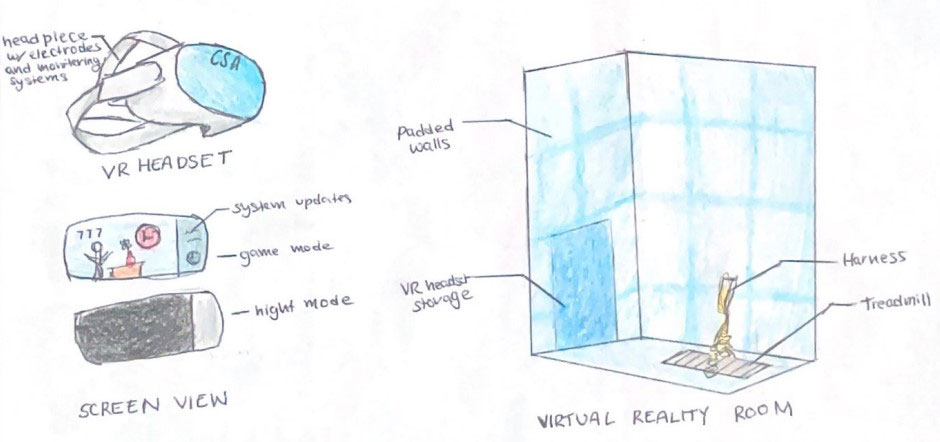 headpiece
w/ electrodes
and monitering
systems
CSA
VR HEADSET
system updates
777
game mode
night mode
SCREEN VIEW
Padded
walls
VR headset
storage
Harness
Treadmill
VIRTUAL REALITY ROOM